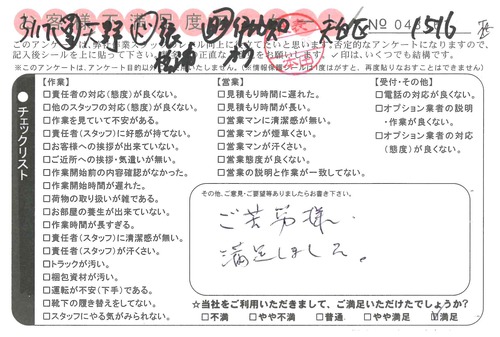 お客様満足度
天白区 1516
№ 048
このアンケートは、弊社作業スタッフのレベル向上に役立てたいと思います。否定的なアンケートになりますので、
記入後シールを上に貼って下さい。✓印は、いくつでも結構です。
※このアンケートは、アンケート目的以外
チェックリスト
【作業】
□責任者の対応(態度)が良くない。
□他のスタッフの対応(態度)が良くない。
□作業を見ていて不安がある。
□責任者(スタッフ)に好感が持てない。
□お客様への挨拶が出来ていない。
□ご近所への挨拶・気遣いが無い。
□作業開始前の内容確認がなかった。
□作業開始時間が遅れた。
□荷物の取り扱いが雑である。
□お部屋の養生が出来ていない。
□作業時間が長すぎる。
□責任者(スタッフ)に清潔感が無い。
□責任者(スタッフ)が汗くさい。
□トラックが汚い。
□梱包資材が汚い。
□運転が不安(下手)である。
□靴下の履き替えをしてない。
□スタッフにやる気がみられない。
【営業】
□見積もり時間に遅れた。
□見積もり時間が長い。
□営業マンに清潔感が無い。
□営業マンが煙草くさい。
□営業マンが汗くさい。
□営業態度が良くない。
□営業の説明と作業が一致してない。
【受付・その他】
□電話の対応が良くない。
□オプション業者の説明
・作業が良くない。
□オプション業者の対応
(態度)が良くない。
その他、ご意見・ご要望等ありましたらお書き下さい。
ご苦労様、
満足しました。
☆当社をご利用いただきまして、ご満足いただけたでしょうか?
□不満 □やや不満 □普通 □やや満足 ☑満足